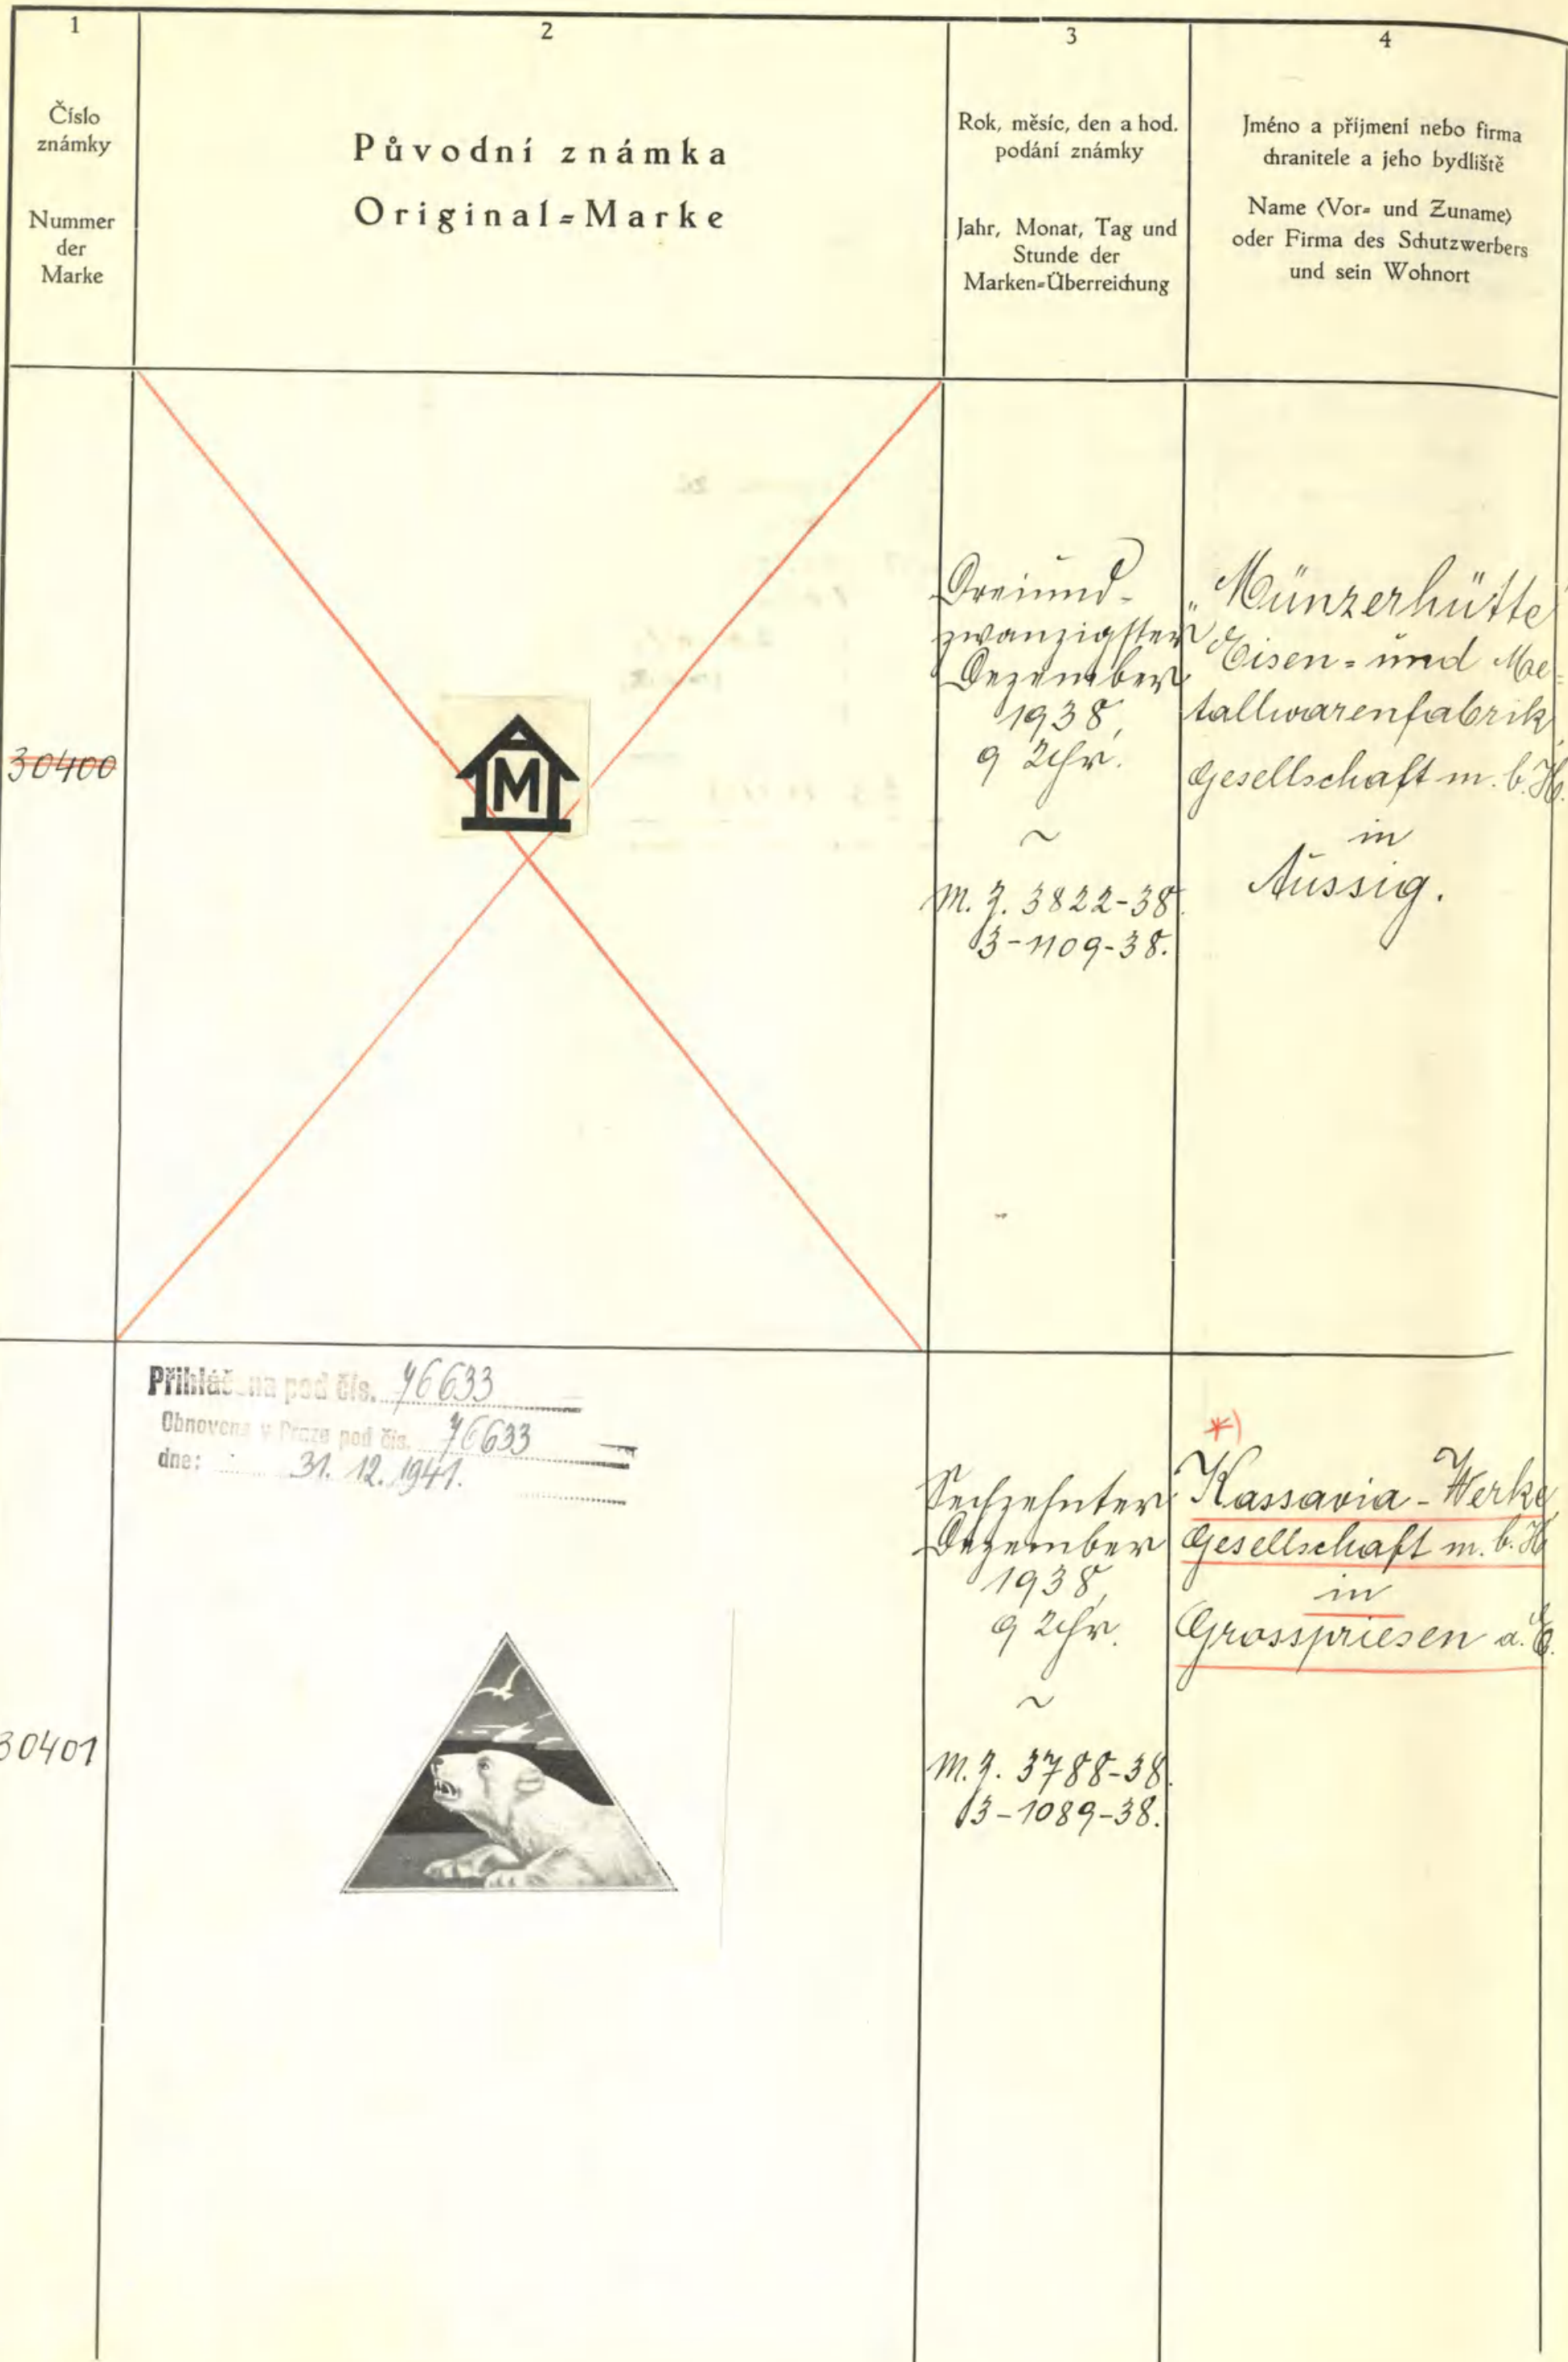 1
Číslo
známky
Nummer
der
Marke
2
Původní známka
Original=Marke
3
Rok, měsíc, den a hod.
podání známky
Jahr, Monat, Tag und
Stunde der
Marken=Überreichung
4
Jméno a příjmení nebo firma
chranitele a jeho bydliště
Name (Vor= und Zuname)
oder Firma des Schutzwerbers
und sein Wohnort
30400
M
Dreiund-
zwanzigster
Dezember
1938,
9 Uhr.
~
M. Z. 3822-38.
B-1109-38.
"Münzerhütte"
Eisen- und Me-
tallwarenfabrik,
Gesellschaft m. b. H.
in
Aussig.
30401
Přihlášena pod čís. 76633
Obnovena v Praze pod čís. 76633
dne: 31. 12. 1941.
Sechzehnter
Dezember
1938,
9 Uhr.
~
M. Z. 3788-38.
B-1089-38.
*)
Kassavia-Werke,
Gesellschaft m. b. H.
in
Grosspriesen a. E.